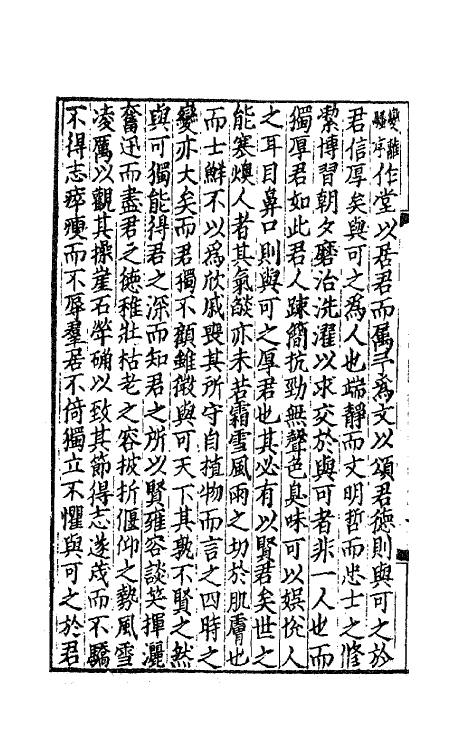 變離騷序作堂以居君而属予為文以頌君德則與可之於
君信厚矣與可之為人也端靜而文明哲而忠士之修
潔博習朝夕磨治洗濯以求交於與可者非一人也而
獨厚君如此君人踈簡抗勁無聲色臭味可以娱悅人
之耳目鼻口則與可之厚君也其必有以賢君矣世之
能寒燠人者其氣燄亦未若霜雪風雨之切於肌膚也
而士鮮不以為欣戚喪其所守自植物而言之四時之
變亦大矣而君獨不顧雖微與可天下其孰不賢之然
與可獨能得君之深而知君之所以賢雍容談笑揮灑
奮迅而盡君之德稚壯枯老之容披折偃仰之勢風雪
凌厲以觀其操崖石犖确以致其節得志遂茂而不驕
不得志瘁瘦而不辱羣居不倚獨立不懼與可之於君